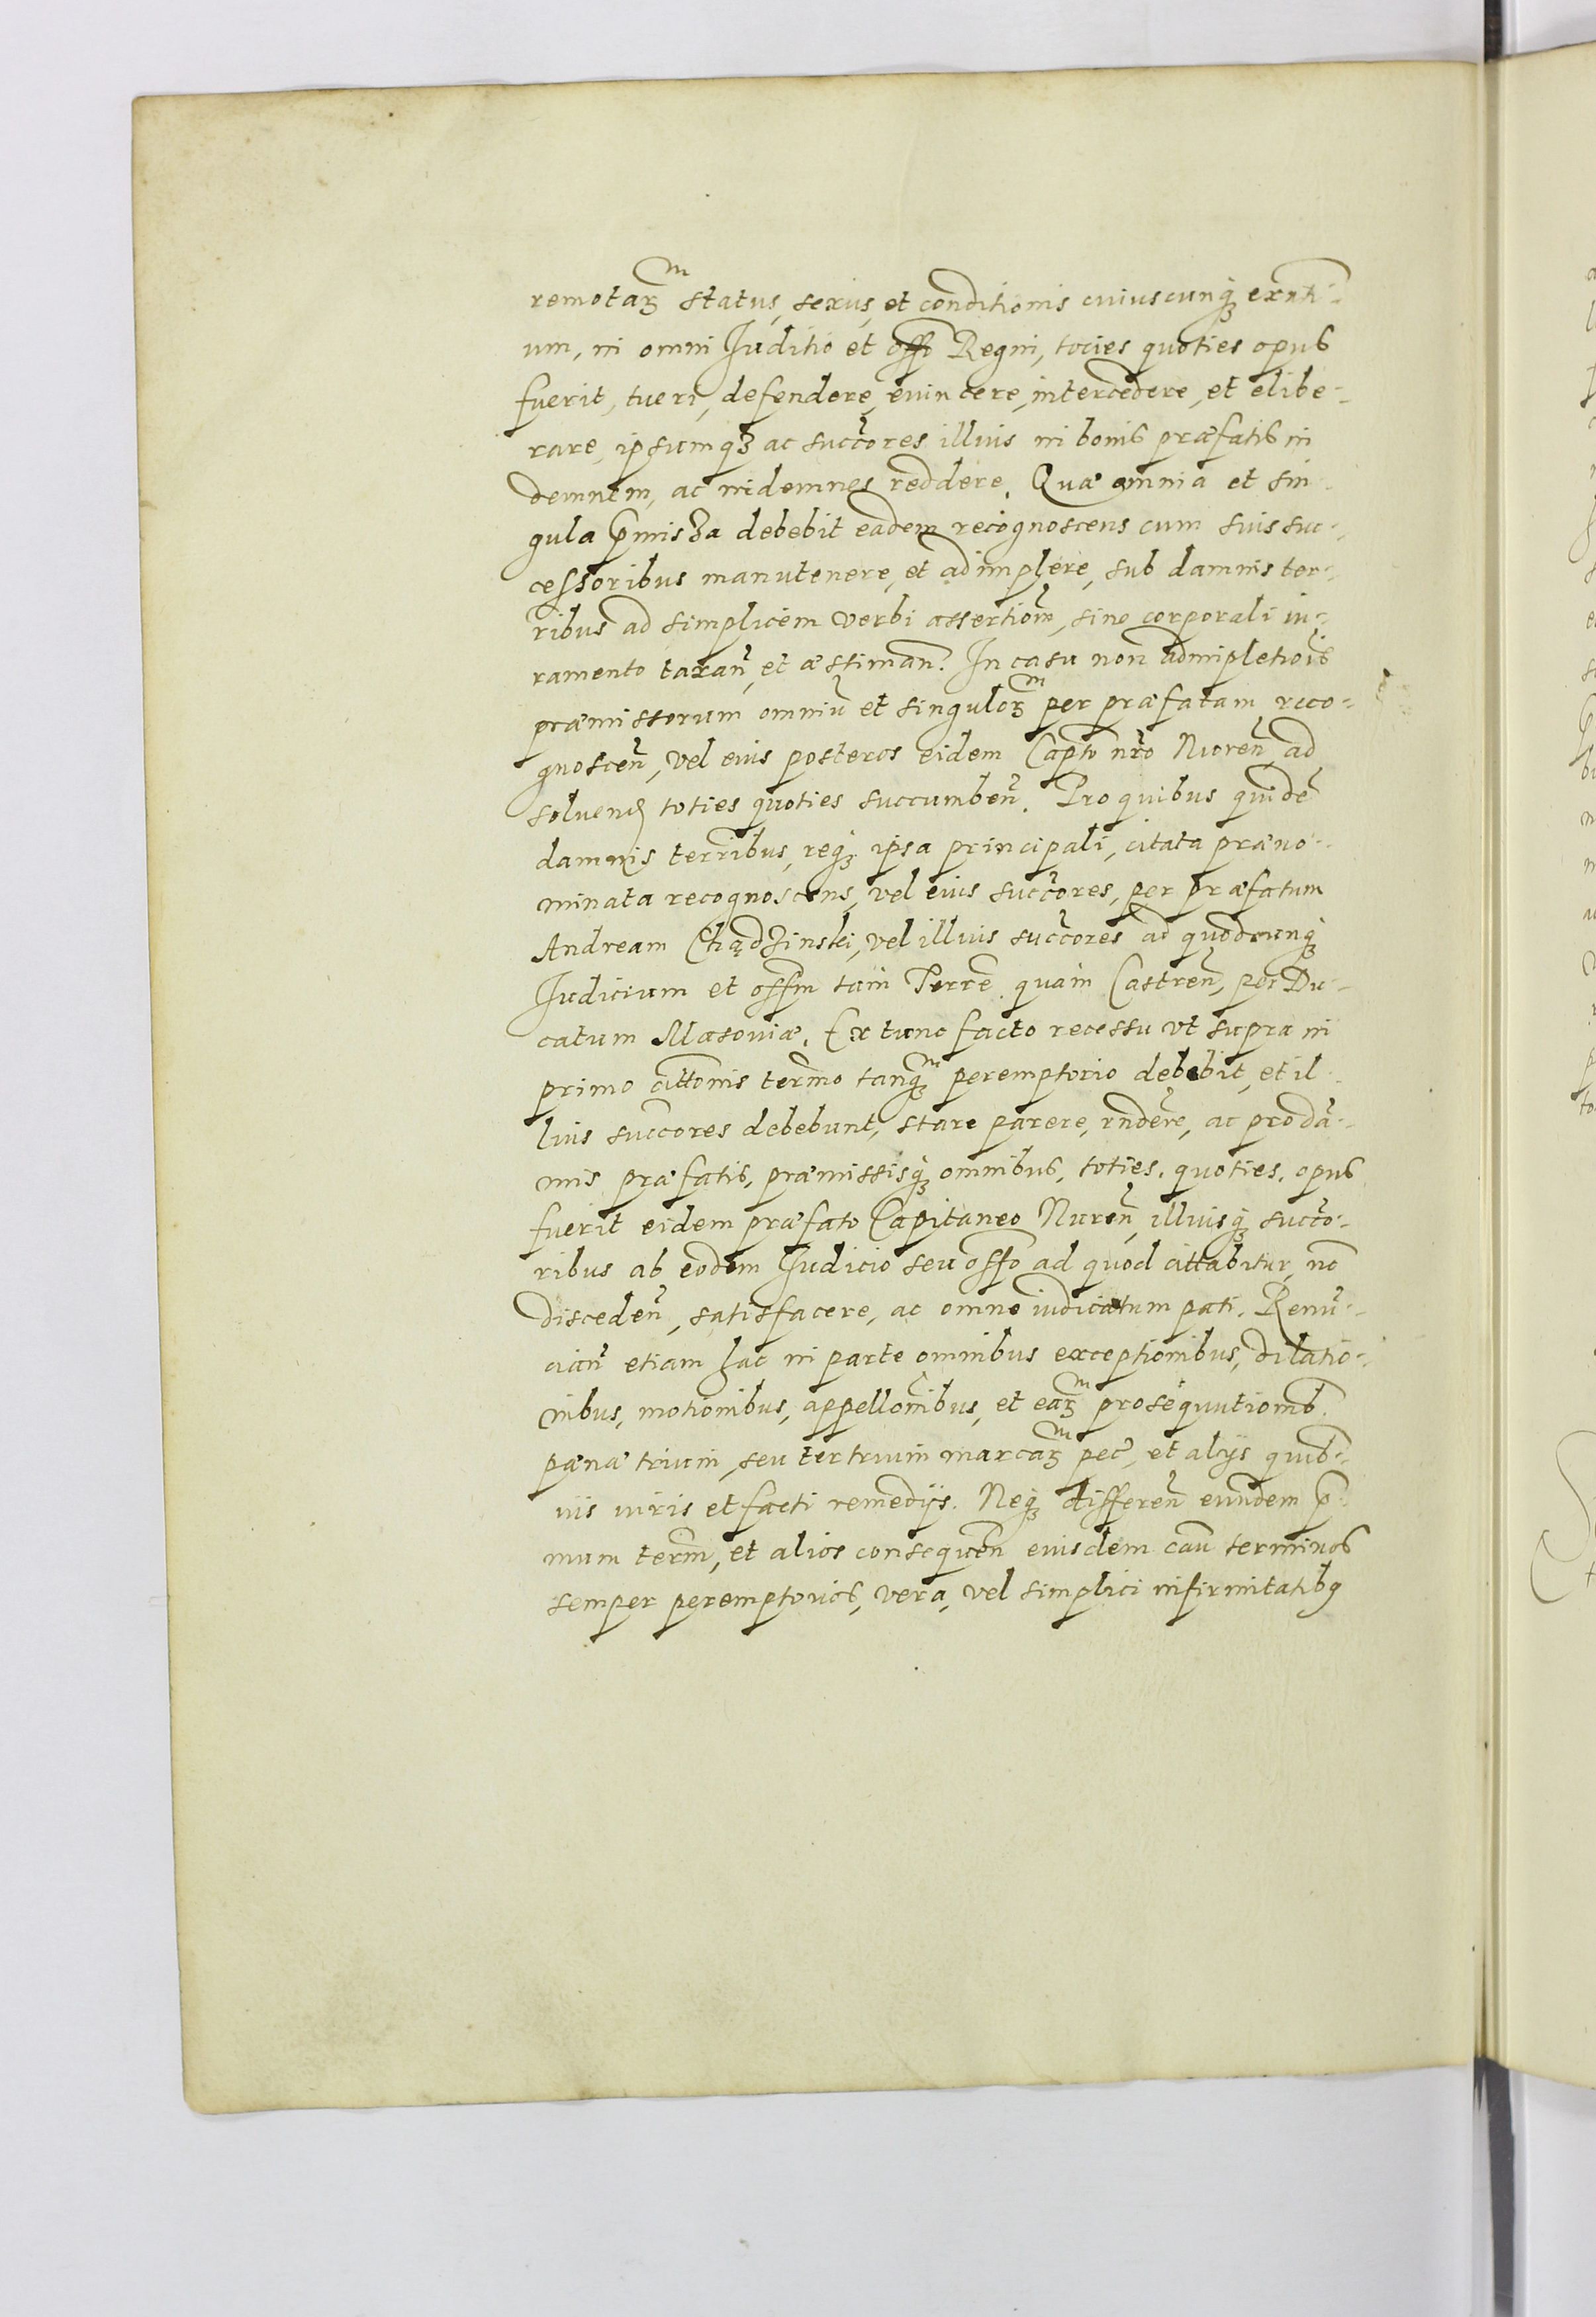 remotarꝫͫ status, sexus, et conditionis cuiuscunqꝫ exn̄ti-
um, in omni Juditio et off̄o Regni, tocies quoties opus
fuerit, tueri, defendere, euincere, intercedere, et elibe-
rare, ipsumqꝫ ac succ̄ores illius in bonis præfatis in
demnem, ac indemnes reddere. Quæ omnia et sin-
gula p̄missa debebit eadem recognoscens cum suis suc-
cessoribus manutenere, et adimplere, sub damnis ter-
ribus ad simplicem verbi assertiom̄, sine corporali iu-
ramento taxan̄, et æstiman̄. In casu non adimpletiōis
præmissorum omniū et singulorꝫͫ per præfatam reco-
gnoscen̄, vel eius posteros eidem Capto nr̄o Nuren̄, ad
soluend toties quoties succumben̄. Pro quibus quidē
damnis terr̄ibus, reqꝫ ipsa principali, citata præno-
minata recognoscens, vel eius succ̄ores, per præfatum
Andream Chądzinski, vel illius succ̄ores ad quodcunqꝫ
Judicium et off̄m tam Terre quam Castren̄, per Du-
catum Masoviæ. Ex tunc facto recessu vt supra in
primo citt̄onis term̄o tanqꝫͫ peremptorio debebit, et il-
lius succ̄ores debebunt, stare parere, rn̄dere, ac pro dā-
mis præfatis, præmissisqꝫ omnibus, toties, quoties, opus
fuerit eidem præfato Capitaneo Nuren̄, illiusqꝫ succ̄o-
ribus ab eodem Judicio seu off̄o ad quod cittabitur, nō
disceden̄, satisfacere, ac omne iudicatum pati. Renū-
cian̄ etiam hac in parte omnibus exceptionibus, dilatio-
nibus, motionibus, appellōnibus, et earꝫͫ prosequutionib.
pænæ trium, seu ter trium marcarꝫͫ pec̄, et alijs quib-
uis iuris et facti remedijs. Neqꝫ differen̄ eundem p̄-
mum term̄, et alios consequen̄ eiusdem cau̅ terminos
semper peremptorios, vera, vel simplici infirmitatibꝯ